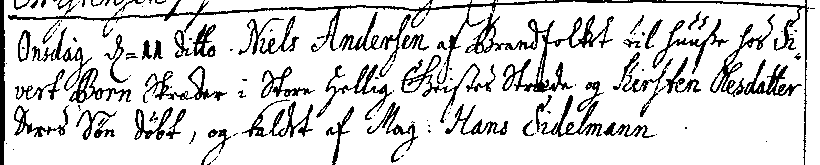 Onsdag d= 11 ditto. Niels Andersen af Brandfolket til huuse hos Si„
vert Born Skræder i Store Hellig Geistes Stræde og Kirsten Olesdatter
Deres Søn døbt, og kaldet af Mag: Hans Fidelmann